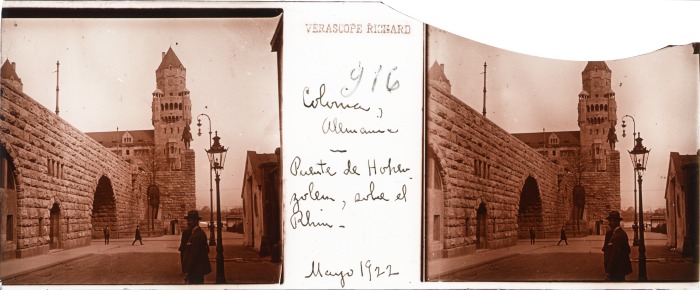 VERASCOPE RICHARD
916
Colonia,
Alemania
—
Puente de Hohen-
zolern, sobre el
Rhin.-
Mayo 1922